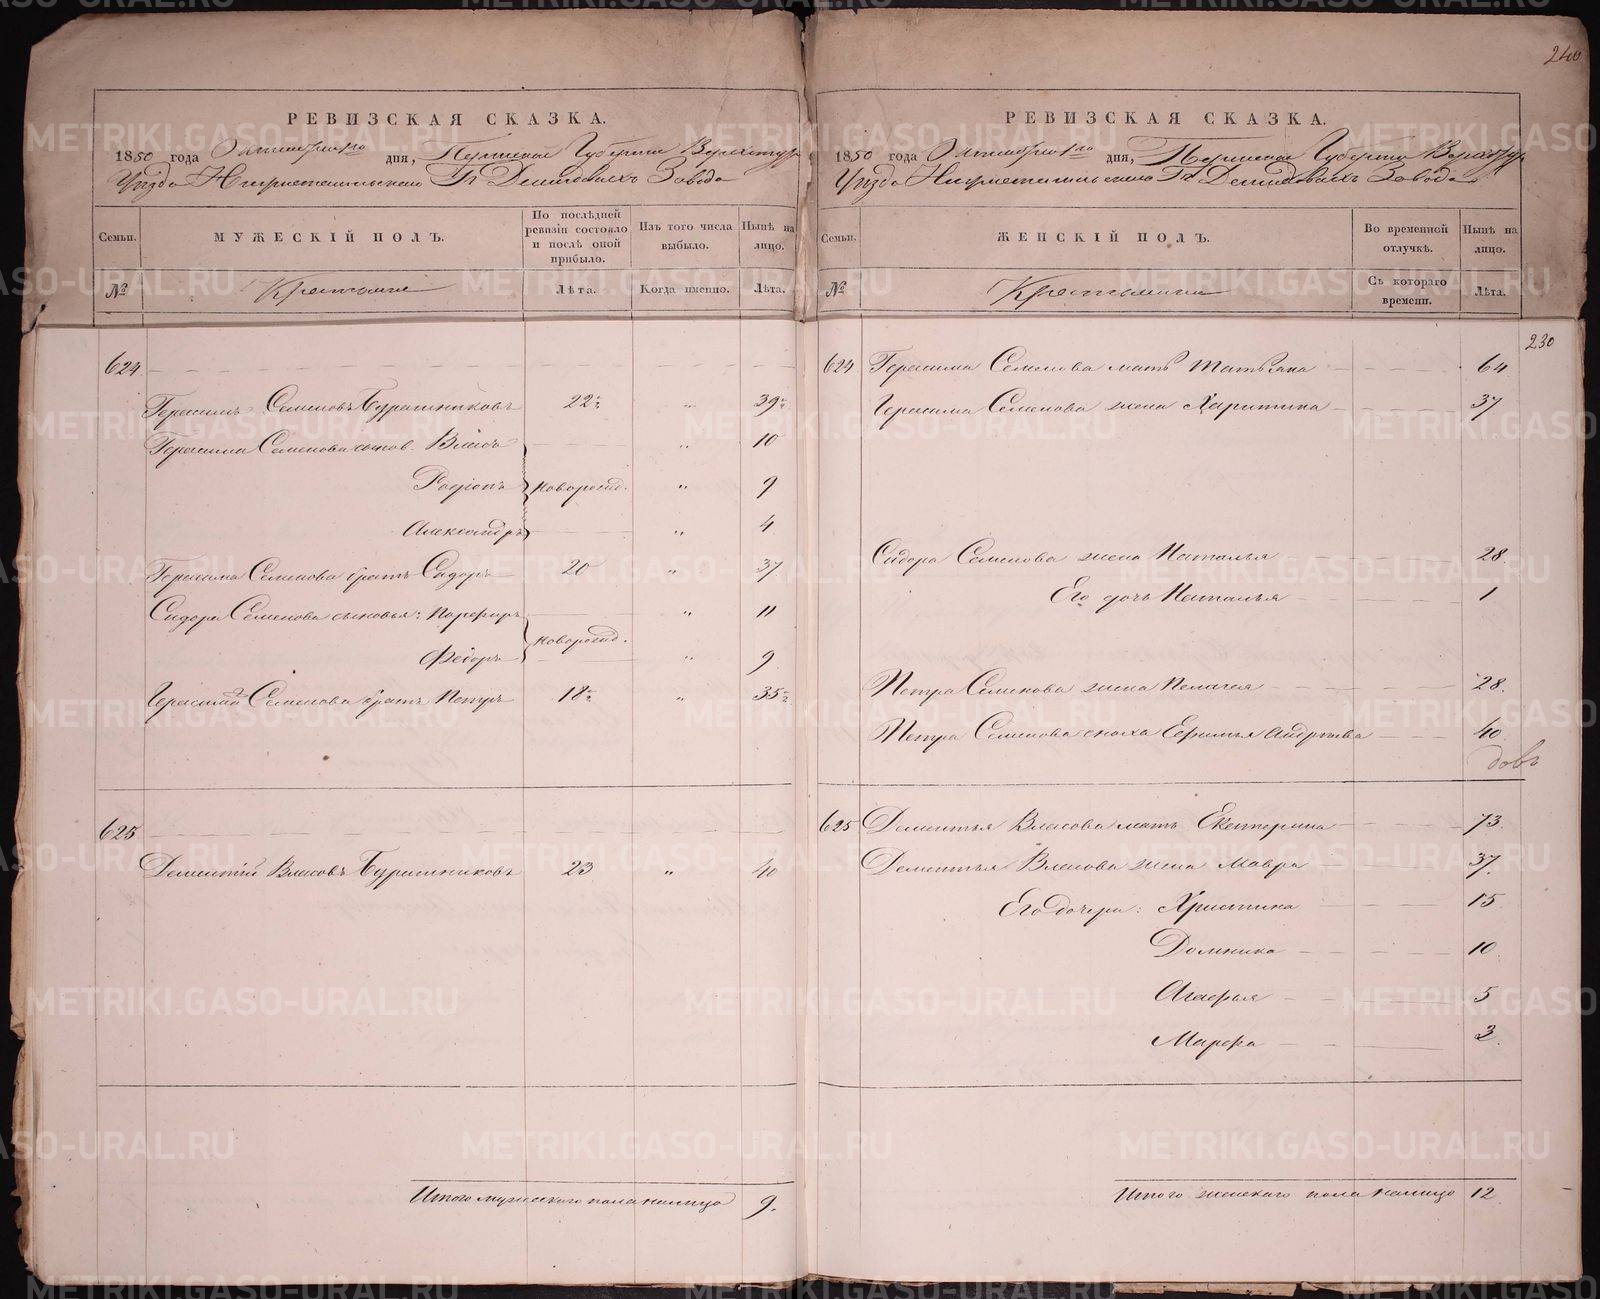 240
РЕВИЗСКАЯ СКАЗКА.
1850 года Октября 1го дня, Пермской Губернiи Верхотур
Уѣзда Нижнетагильскаго Гг Демидовыхъ Завода
Семьи.
МУЖЕСКІЙ ПОЛЪ.
По послѣдней ревизіи состояло и послѣ оной прибыло.
Изъ того числа выбыло.
Нынѣ на лицо.
№
Крестьяне
Лѣта.
Когда именно.
Лѣта.
624
Герасимъ Семеновъ Бурашниковъ 22½ „ 39½
Герасима Семенова сынов. Власъ „ 10
Родіонъ новорожд. „ 9
Александръ „ 4
Герасима Семенова братъ Сидоръ 20 „ 37
Сидора Семенова сыновья: Порфиръ „ 11
новорожд.
Ѳедоръ „ 9
Герасима 2й Семенова братъ Петръ 18½ „ 35½
625
Дементій Власовъ Бурашниковъ 23 „ 40
Итого мужескаго пола налицо 9.
РЕВИЗСКАЯ СКАЗКА.
1850 года Октября 1го дня, Пермской Губерніи Верхотур
Уѣзда Нижнетагильскаго Гг Демидовыхъ Завода
Семьи.
ЖЕНСКІЙ ПОЛЪ.
Во временной отлучкѣ.
Нынѣ на лицо.
№
Крестьяне
Съ котораго времени.
Лѣта.
230
624 Герасима Семенова мать Татьяна 64
Герасима Семенова жена Харитина 37
Сидора Семенова жена Наталья 28.
Его дочь Наталья 1
Петра Семенова жена Пелагея 28.
Петра Семенова сноха Ефимья Андреева 40
вдов
625 Дементья Власова мать Екатерина 73.
Дементья Власова жена Мавра 37.
Его дочери: Христина 15
Домника 10.
Агафья 5
Марфа 3
Итого женскаго пола налицо 12.
METRIKI.GASO-URAL.RU